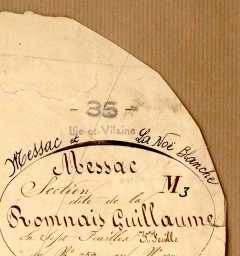 - 35 -
Ille-et-Vilaine
Messac et La Noë Blanche
Messac
Section M3
dite de la
Romnais Guillaume
en Sept Feuilles 3e feuille